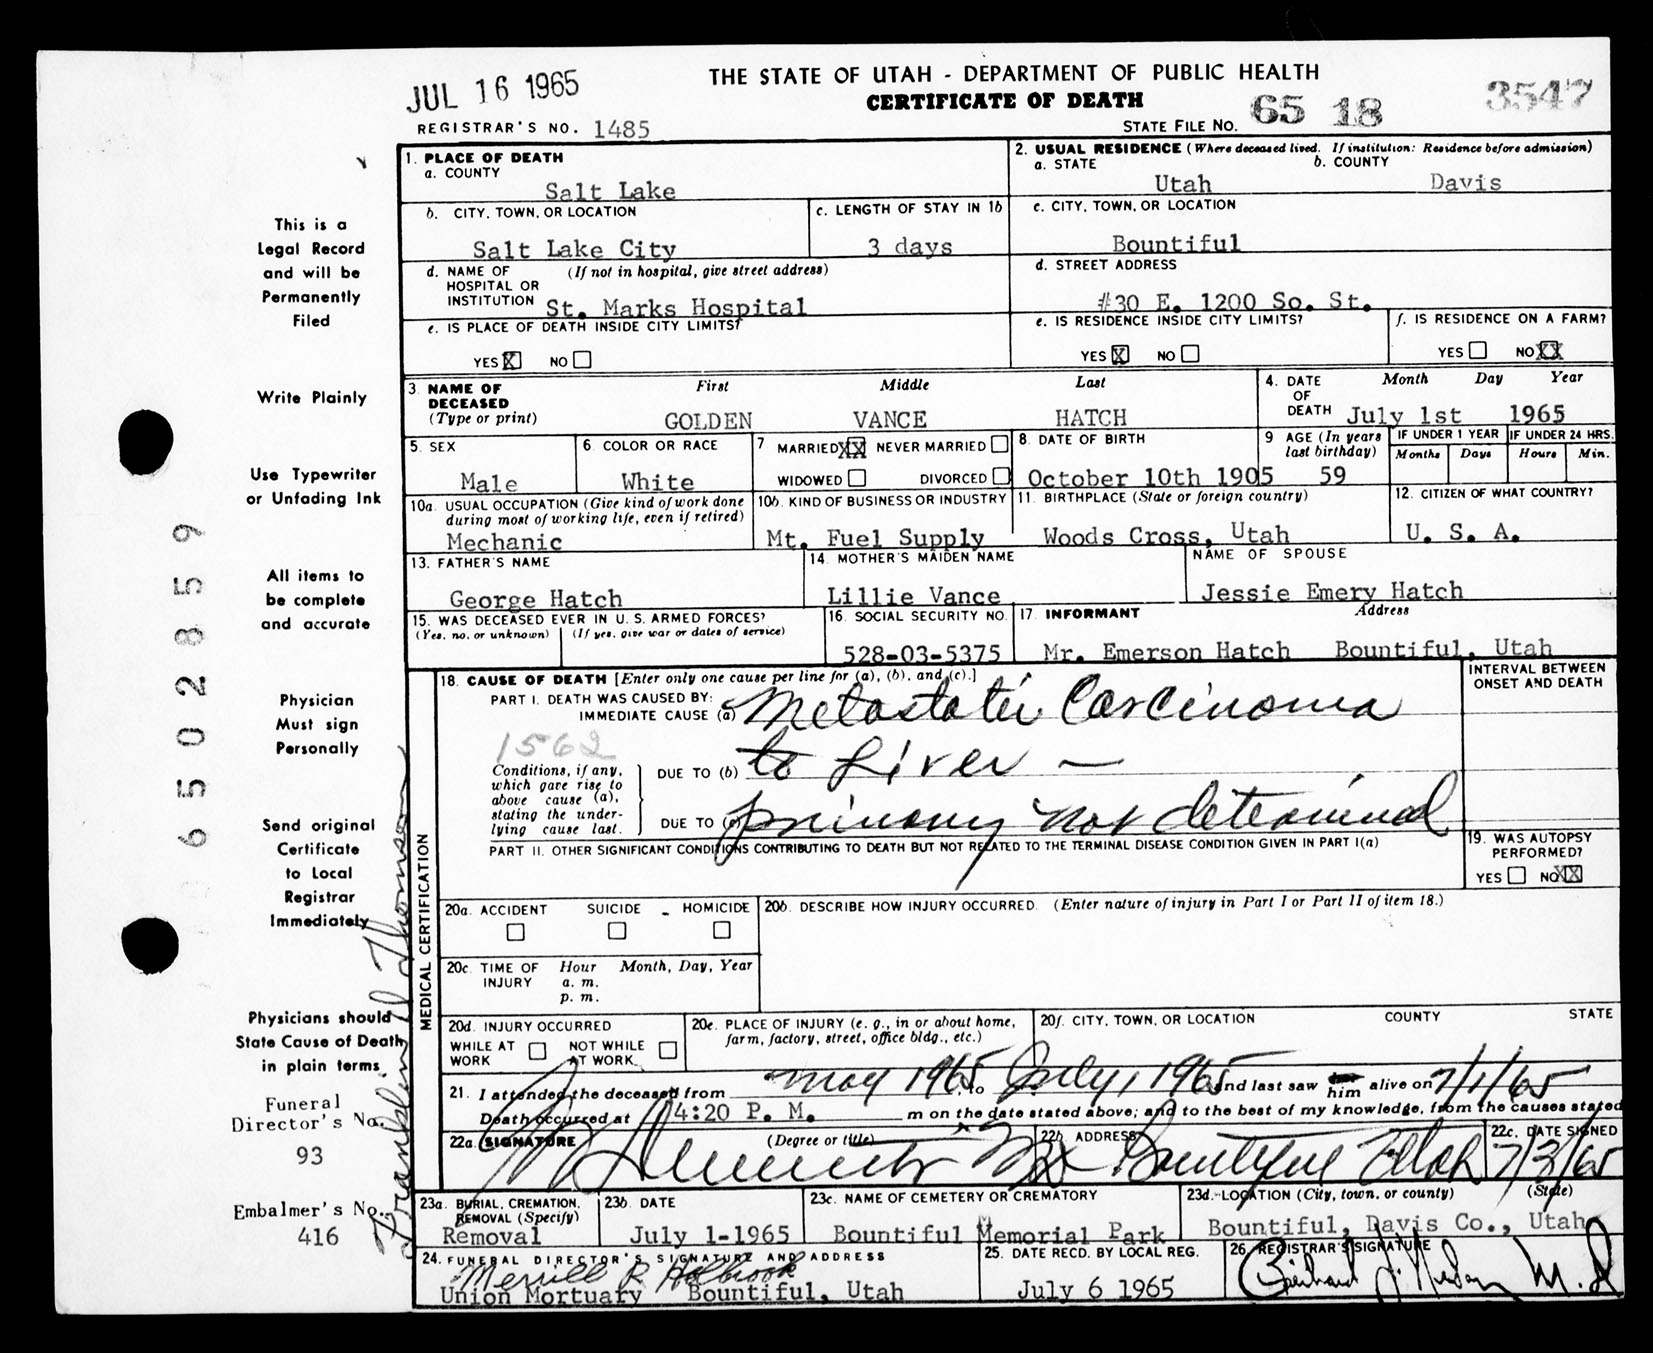 JUL 16 1965
THE STATE OF UTAH - DEPARTMENT OF PUBLIC HEALTH
CERTIFICATE OF DEATH
REGISTRAR'S NO. 1485
STATE FILE NO. 65 18 3547
This is a
Legal Record
and will be
Permanently
Filed
Write Plainly
Use Typewriter
or Unfading Ink
All items to
be complete
and accurate
Physician
Must sign
Personally
Send original
Certificate
to Local
Registrar
Immediately
Physicians should
State Cause of Death
in plain terms
Funeral
Director's No.
93
Embalmer's No.
416
650 2859
Franklin D Thomson
1. PLACE OF DEATH
a. COUNTY
Salt Lake
2. USUAL RESIDENCE (Where deceased lived. If institution: Residence before admission)
a. STATE b. COUNTY
Utah Davis
b. CITY, TOWN, OR LOCATION
Salt Lake City
c. LENGTH OF STAY IN 1b
3 days
c. CITY, TOWN, OR LOCATION
Bountiful
d. NAME OF (If not in hospital, give street address)
HOSPITAL OR
INSTITUTION St. Marks Hospital
d. STREET ADDRESS
#30 E. 1200 So. St.
e. IS PLACE OF DEATH INSIDE CITY LIMITS?
YES X NO
e. IS RESIDENCE INSIDE CITY LIMITS?
YES X NO
f. IS RESIDENCE ON A FARM?
YES NO XX
3. NAME OF First Middle Last
DECEASED
(Type or print) GOLDEN VANCE HATCH
4. DATE Month Day Year
OF
DEATH July 1st 1965
5. SEX
Male
6. COLOR OR RACE
White
7 MARRIED XX NEVER MARRIED
WIDOWED DIVORCED
8. DATE OF BIRTH
October 10th 1905
9 AGE (In years
last birthday)
59
IF UNDER 1 YEAR IF UNDER 24 HRS.
Months Days Hours Min.
10a. USUAL OCCUPATION (Give kind of work done
during most of working life, even if retired)
Mechanic
10b. KIND OF BUSINESS OR INDUSTRY
Mt. Fuel Supply
11. BIRTHPLACE (State or foreign country)
Woods Cross, Utah
12. CITIZEN OF WHAT COUNTRY?
U. S. A.
13. FATHER'S NAME
George Hatch
14. MOTHER'S MAIDEN NAME
Lillie Vance
NAME OF SPOUSE
Jessie Emery Hatch
15. WAS DECEASED EVER IN U. S. ARMED FORCES?
(Yes, no, or unknown) (If yes, give war or dates of service)
16. SOCIAL SECURITY NO.
528-03-5375
17. INFORMANT Address
Mr. Emerson Hatch Bountiful, Utah
MEDICAL CERTIFICATION
18. CAUSE OF DEATH [Enter only one cause per line for (a), (b), and (c).]
INTERVAL BETWEEN
ONSET AND DEATH
PART I. DEATH WAS CAUSED BY:
IMMEDIATE CAUSE (a) Metastatic Carcinoma
1562
Conditions, if any,
which gave rise to
above cause (a),
stating the under-
lying cause last.
DUE TO (b) to Liver —
DUE TO (c) primary not determined
PART II. OTHER SIGNIFICANT CONDITIONS CONTRIBUTING TO DEATH BUT NOT RELATED TO THE TERMINAL DISEASE CONDITION GIVEN IN PART I(a)
19. WAS AUTOPSY
PERFORMED?
YES NO XX
20a. ACCIDENT SUICIDE - HOMICIDE
20b. DESCRIBE HOW INJURY OCCURRED. (Enter nature of injury in Part I or Part II of item 18.)
20c. TIME OF Hour Month, Day, Year
INJURY a. m.
p. m.
20d. INJURY OCCURRED
WHILE AT NOT WHILE
WORK AT WORK
20e. PLACE OF INJURY (e. g., in or about home,
farm, factory, street, office bldg., etc.)
20f. CITY, TOWN, OR LOCATION COUNTY STATE
21. I attended the deceased from May 1965, to July 1, 1965 and last saw him alive on 7/1/65
Death occurred at 4:20 P. M. m on the date stated above; and to the best of my knowledge, from the causes stated
22a. (SIGNATURE (Degree or title)
22b. ADDRESS
Bountiful Utah
22c. DATE SIGNED
7/3/65
23a. BURIAL, CREMATION,
REMOVAL (Specify)
Removal
23b. DATE
July 1-1965
23c. NAME OF CEMETERY OR CREMATORY
Bountiful Memorial Park
23d. LOCATION (City, town, or county) (State)
Bountiful, Davis Co., Utah
24. FUNERAL DIRECTOR'S SIGNATURE AND ADDRESS
Merrill R Holbrook
Union Mortuary Bountiful, Utah
25. DATE RECD. BY LOCAL REG.
July 6 1965
26. REGISTRAR'S SIGNATURE
M. D